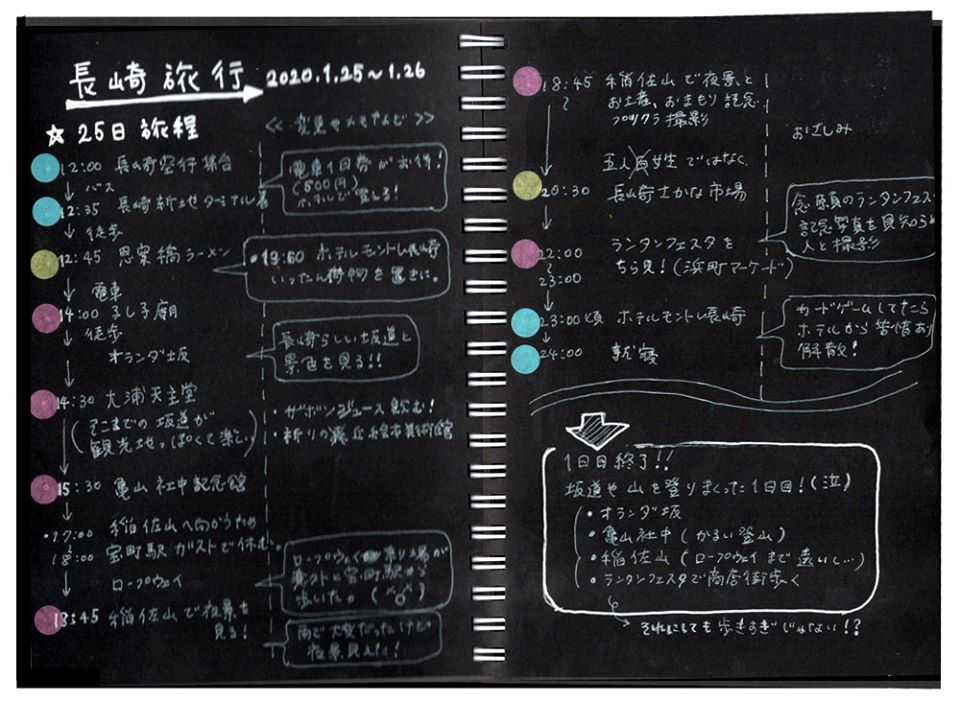 長崎旅行 2020.1.25～1.26
☆ 25日 旅程
<< 変更やメモなど >>
12:00 長崎空行集合
↓ バス
12:35 長崎新地ターミナル着
↓ 徒歩
12:45 思案橋ラーメン
↓ 電車
14:00 孔子廟
↓ 徒歩
オランダ坂
14:30 大浦天主堂
(そこまでの坂道が
観光地っぽくて楽しい)
15:30 亀山社中記念館
・17:00 稲佐山へ向かうため
18:00 宝町駅ガストで休む。
ロープウェイ
18:45 稲佐山で夜景を
見る!
電車1日券がお得!
(500円
ホテルで買える!
・19:50 ホテルモントレ長崎
いったん荷物を置きに。
長崎らしい坂道と
景色を見る!!
・ザボンジュース飲む!
・祈りの丘絵本美術館
ロープウェイ乗り場が
意外と宝町駅から
歩いた。
雨で大変だったけど
夜景見えた!
18:45 稲佐山で夜景と
お土産、おまもり記念
プリクラ撮影
五人女性ではなく
20:30 長崎さかな市場
22:00 ランタンフェスタを
23:00 ちら見!(浜町アーケード)
23:00頃 ホテルモントレ長崎
24:00 就寝
おさしみ
念願のランタンフェスタ
記念写真を見知らぬ
人と撮影
カードゲームしてたら
ホテルから苦情あり
解散!
1日目終了!!
坂道や山を登りまくった1日目!(泣)
・オランダ坂
・亀山社中(かるい登山)
・稲佐山(ロープウェイまで遠いし...)
・ランタンフェスタで商店街歩く
それにしても歩きすぎじゃない!?